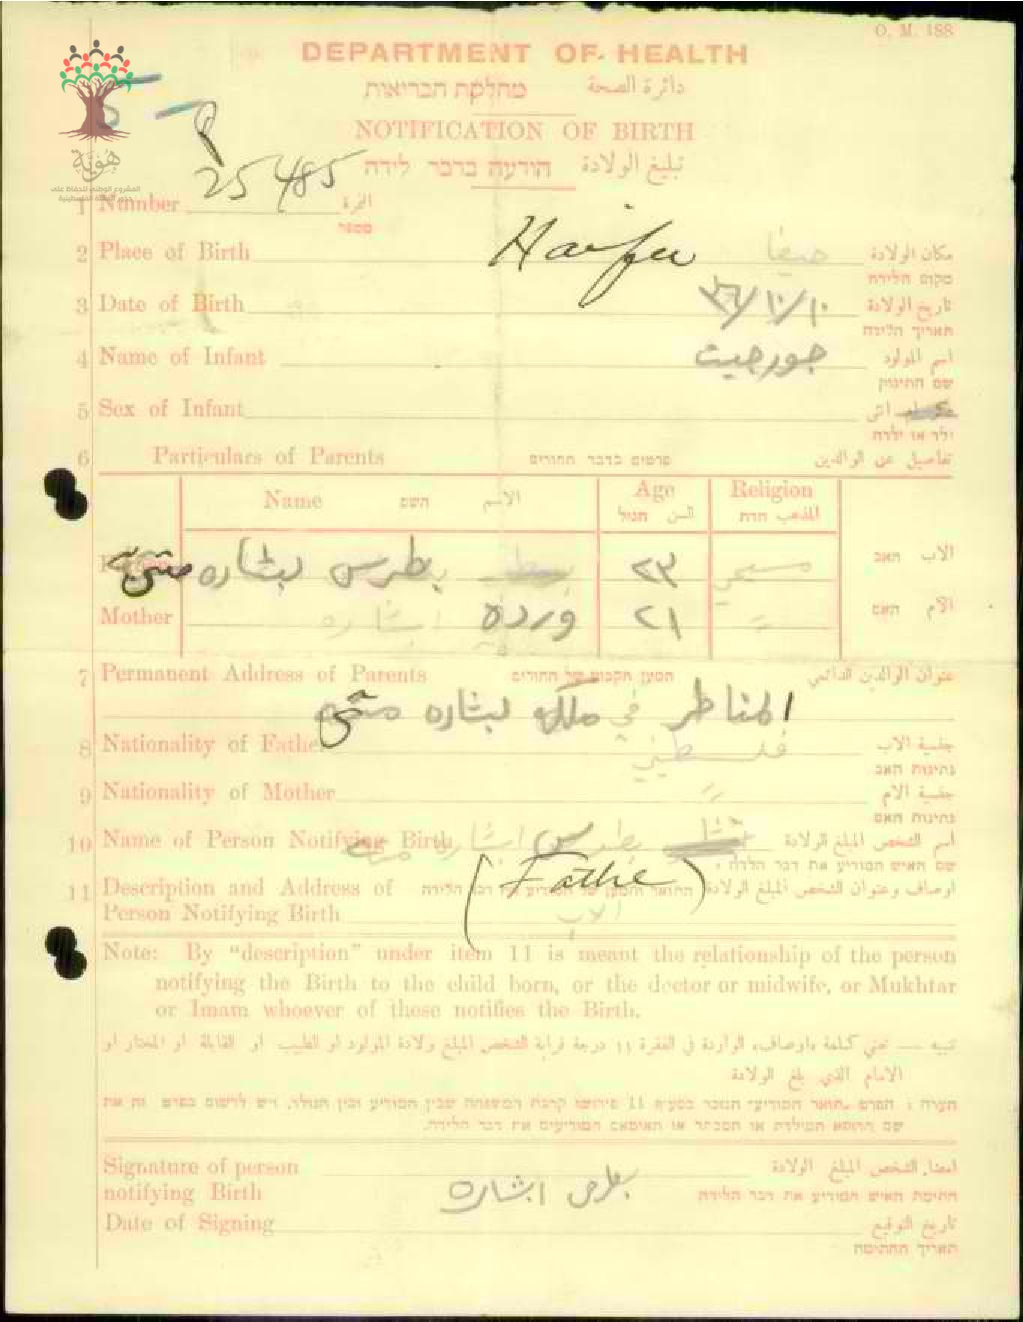 O. M. 188
DEPARTMENT OF HEALTH
מחלקת הבריאות دائرة الصحة
NOTIFICATION OF BIRTH
הודעה בדבר לידה تبليغ الولادة
هوية
25485
1 Number النمرة
מספר
2 Place of Birth Haifa حيفا مكان الولادة
מקום הלידה
3 Date of Birth ٣٦/١٠/١٠ تاريخ الولادة
תאריך הלידה
4 Name of Infant جورجيت اسم المولود
שם התינוק
5 Sex of Infant ذكر ام انثى
ילד או ילדה
6 Particulars of Parents פרטים בדבר ההורים تفاصيل عن الوالدين
Name השם الاسم Age الסن הגיל Religion المذهب הדת
بطرس بشاره متى ٢٣ مسيحي الاب האב
Mother وردة ٢١ " الام האם
7 Permanent Address of Parents המען הקבוע של ההורים عنوان الوالدين الدائمي
المناطر في ملك بشاره متى
8 Nationality of Father فلسطيني جنسية الاب
נתינות האב
9 Nationality of Mother " جنسية الام
נתינות האם
10 Name of Person Notifying Birth بطرس ابشاره اسم الشخص المبلغ الولادة
שם האיש המודיע את דבר הלידה
11 Description and Address of (Father) اوصاف وعنوان الشخص المبلغ الولادة
Person Notifying Birth الاب
Note: By "description" under item 11 is meant the relationship of the person
notifying the Birth to the child born, or the doctor or midwife, or Mukhtar
or Imam whoever of these notifies the Birth.
تنبيه — تعني كلمة «اوصاف» الواردة في الفقرة ١١ درجة قرابة الشخص المبلغ ولادة المولود او الطبيب او القابلة او المختار او
الامام الذي بلغ الولادة
Signature of person امضاء الشخص المبلغ الولادة
notifying Birth بطرس ابشاره חתימת האיש המודיע את דבר הלידה
Date of Signing تاريخ التوقيع
תאריך החתימה